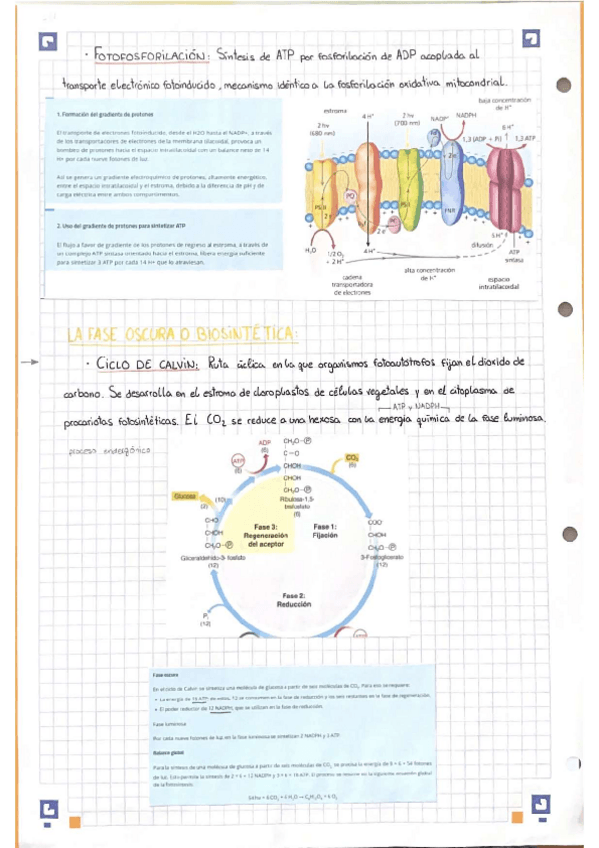 · FOTOFOSFORILACIÓN: Síntesis de ATP por fosforilación de ADP acoplada al
transporte electrónico fotoinducido, mecanismo idéntico a la fosforilación oxidativa mitocondrial.
1. Formación del gradiente de protones
El transporte de electrones fotoinducido, desde el H2O hasta el NADP+, a través
de los transportadores de electrones de la membrana tilacoidal, provoca un
bombeo de protones hacia el espacio intratilacoidal con un balance neto de 14
H+ por cada nueve fotones de luz.
Así se genera un gradiente electroquímico de protones, altamente energético,
entre el espacio intratilacoidal y el estroma, debido a la diferencia de pH y de
carga eléctrica entre ambos compartimentos.
2. Uso del gradiente de protones para sintetizar ATP
El flujo a favor de gradiente de los protones de regreso al estroma, a través de
un complejo ATP sintasa orientado hacia el estroma, libera energía suficiente
para sintetizar 3 ATP por cada 14 H+ que lo atraviesan.
baja concentración
de H⁺
estroma
4 H⁺
2 hν
(680 nm)
2 hν
(700 nm)
NADP⁺
NADPH
1,3 (ADP + Pi)
1,3 ATP
PQ
PS II
PS I
PC
FNR
2 e⁻
H₂O
1/2 O₂
+ 2 H⁺
4H⁺
difusión
ATP
sintasa
cadena
transportadora
de electrones
alta concentración
de H⁺
espacio
intratilacoidal
LA FASE OSCURA O BIOSINTÉTICA:
· CICLO DE CALVIN: Ruta cíclica en la que organismos fotoautótrofos fijan el dióxido de
carbono. Se desarrolla en el estroma de cloroplastos de células vegetales y en el citoplasma de
ATP y NADPH
procariotas fotosintéticas. El CO₂ se reduce a una hexosa con la energía química de la fase luminosa.
proceso endergónico
ADP
(6)
ATP
(6)
CH₂O-P
C=O
CHOH
CHOH
CH₂O-P
Ribulosa-1,5-
bisfosfato
(6)
CO₂
(6)
Glucosa
(2)
(10)
Fase 3:
Regeneración
del aceptor
Fase 1:
Fijación
CHO
CHOH
CH₂O-P
Gliceraldehído-3-fosfato
(12)
COO
CHOH
CH₂O-P
3-Fosfoglicerato
(12)
Fase 2:
Reducción
Pi
(12)
Fase oscura
En el ciclo de Calvin se sintetiza una molécula de glucosa a partir de seis moléculas de CO₂. Para ello se requiere:
• La energía de 18 ATP, de estos, 12 se consumen en la fase de reducción y los seis restantes en la fase de regeneración.
• El poder reductor de 12 NADPH, que se utilizan en la fase de reducción.
Fase luminosa
Por cada nueve fotones de luz, en la fase luminosa se sintetizan 2 NADPH y 3 ATP.
Balance global
Para la síntesis de una molécula de glucosa a partir de seis moléculas de CO₂, se precisa la energía de 9 × 6 = 54 fotones
de luz. Esto permite la síntesis de 2 × 6 = 12 NADPH y 3 × 6 = 18 ATP. El proceso se resume en la siguiente ecuación global
de la fotosíntesis:
54 hν + 6 CO₂ + 6 H₂O → C₆H₁₂O₆ + 6 O₂